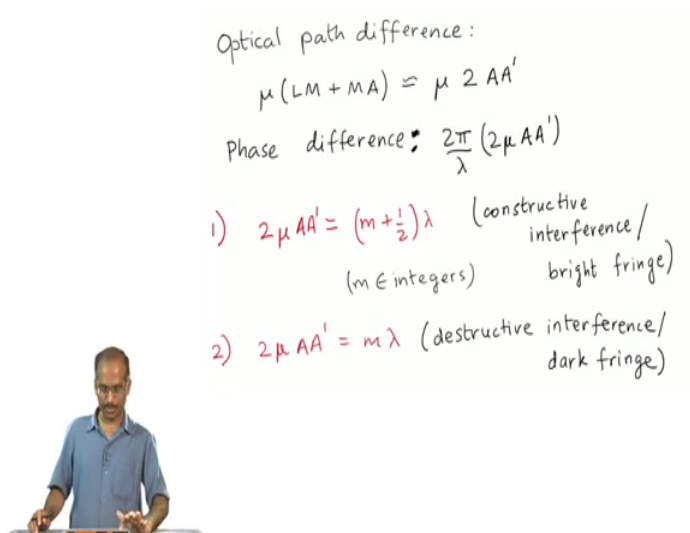 Optical path difference:
μ(LM + MA) ≈ μ 2 AA'
Phase difference: 2π/λ (2μ AA')
1) 2μ AA' = (m + 1/2) λ (constructive
interference/
(m ∈ integers) bright fringe)
2) 2μ AA' = mλ (destructive interference/
dark fringe)